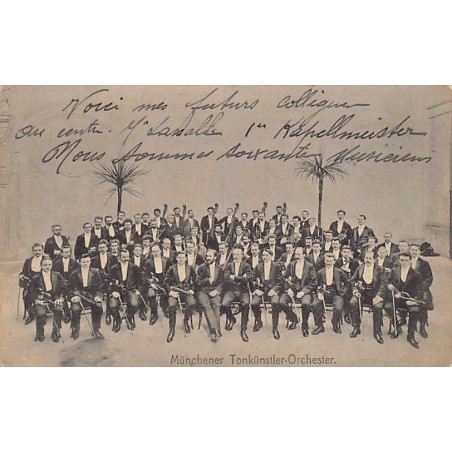 Voici mes futurs collègues
au centre. Mr Lasalle 1er Kapellmeister
Nous sommes soixante Musiciens
Münchener Tonkünstler-Orchester.